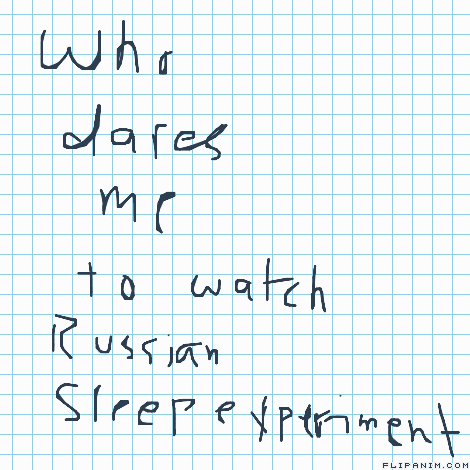 Who
dares
me
to watch
Russian
Sleep experiment
FLIPANIM.COM